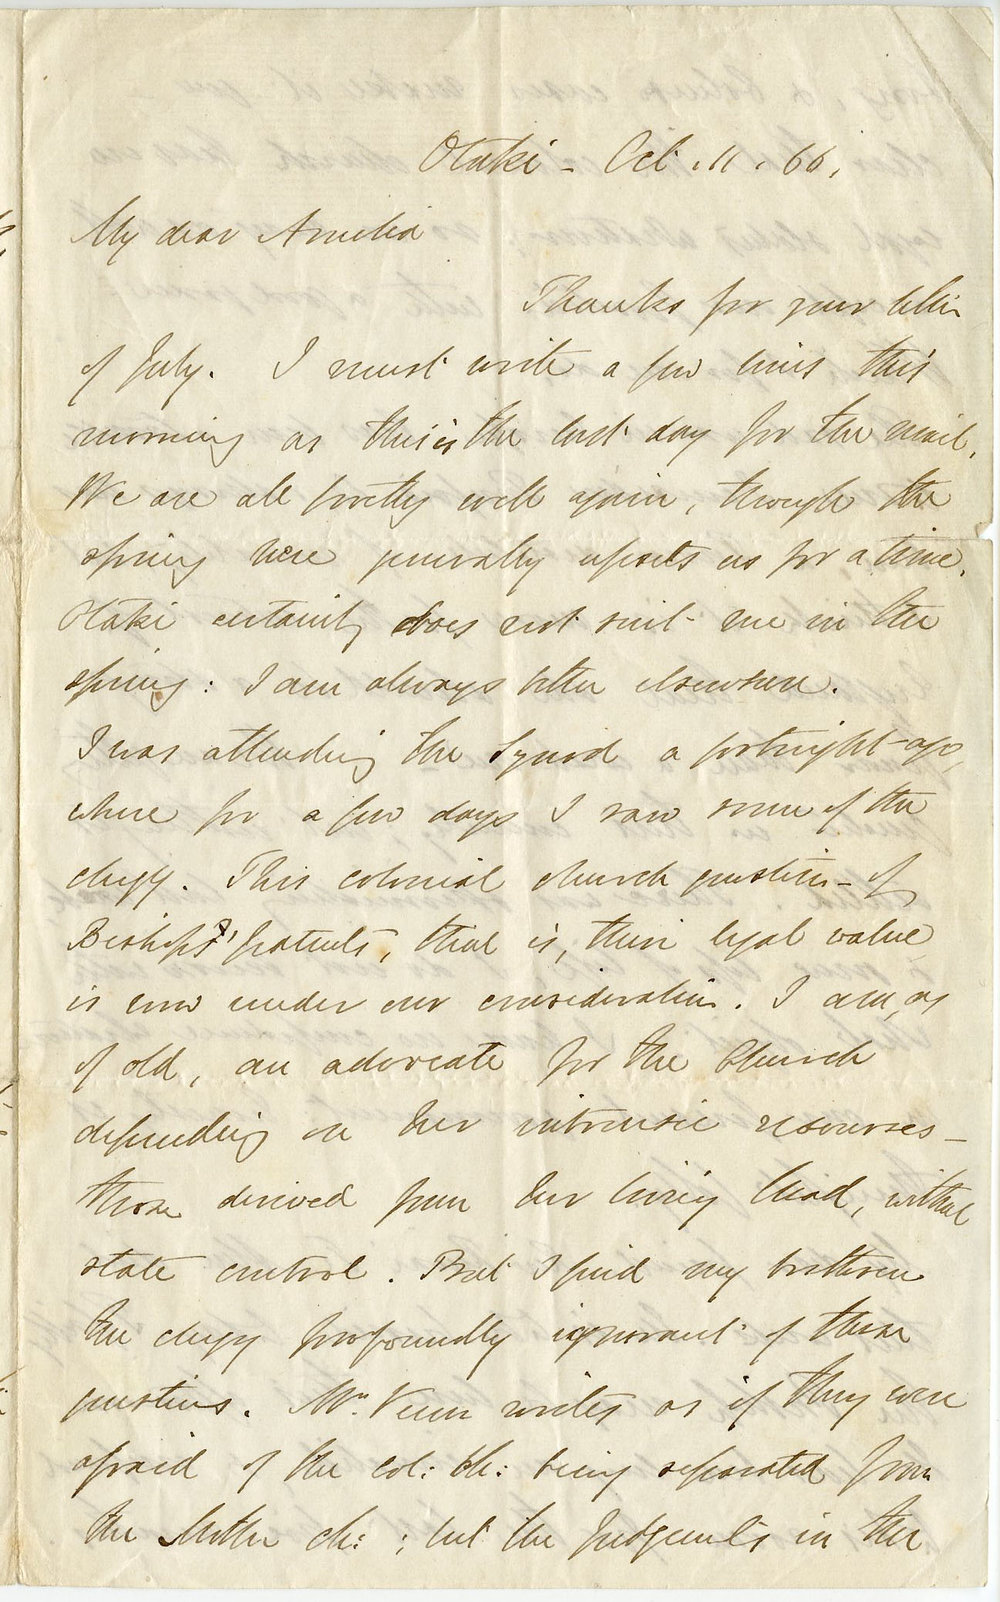 Otaki - Oct. 11. 66.
My dear Amelia
Thanks for your letter
of July. I must write a few lines this
morning as this is the last day for the mail.
We are all pretty well again, though the
spring here generally upsets us for a time.
Otaki certainly does not suit me in the
spring: I am always better elsewhere.
I was attending the Synod a fortnight ago,
where for a few days I saw some of the
clergy. This colonial church question - of
Bishops' patents, that is, their legal value
is now under our consideration. I am, as
of old, an advocate for the Church
depending on her intrinsic resources -
those derived from her living head, without
state control. But I find my brethren
the clergy profoundly ignorant of these
questions. Mr. Venn writes as if they were
afraid of the col: ch: being separated from
the Mother ch: ; but the Judgments in the